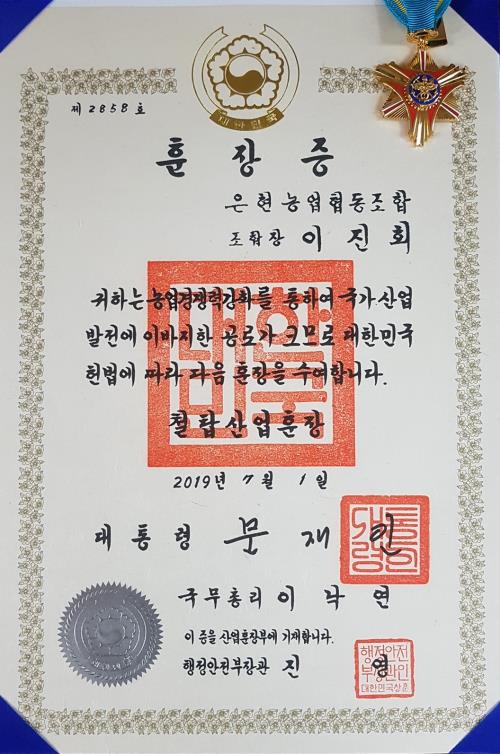 대한민국
제 2858 호
훈장증
은현농업협동조합
조합장 이진회
귀하는 농업경쟁력강화를 통하여 국가산업
발전에 이바지한 공로가 크므로 대한민국
헌법에 따라 다음 훈장을 수여합니다.
철탑산업훈장
2019년 7월 1일
대통령 문재인
국무총리 이낙연
이 증을 산업훈장부에 기재합니다.
행정안전부장관 진영
행정안전
부장관인
대한민국상훈